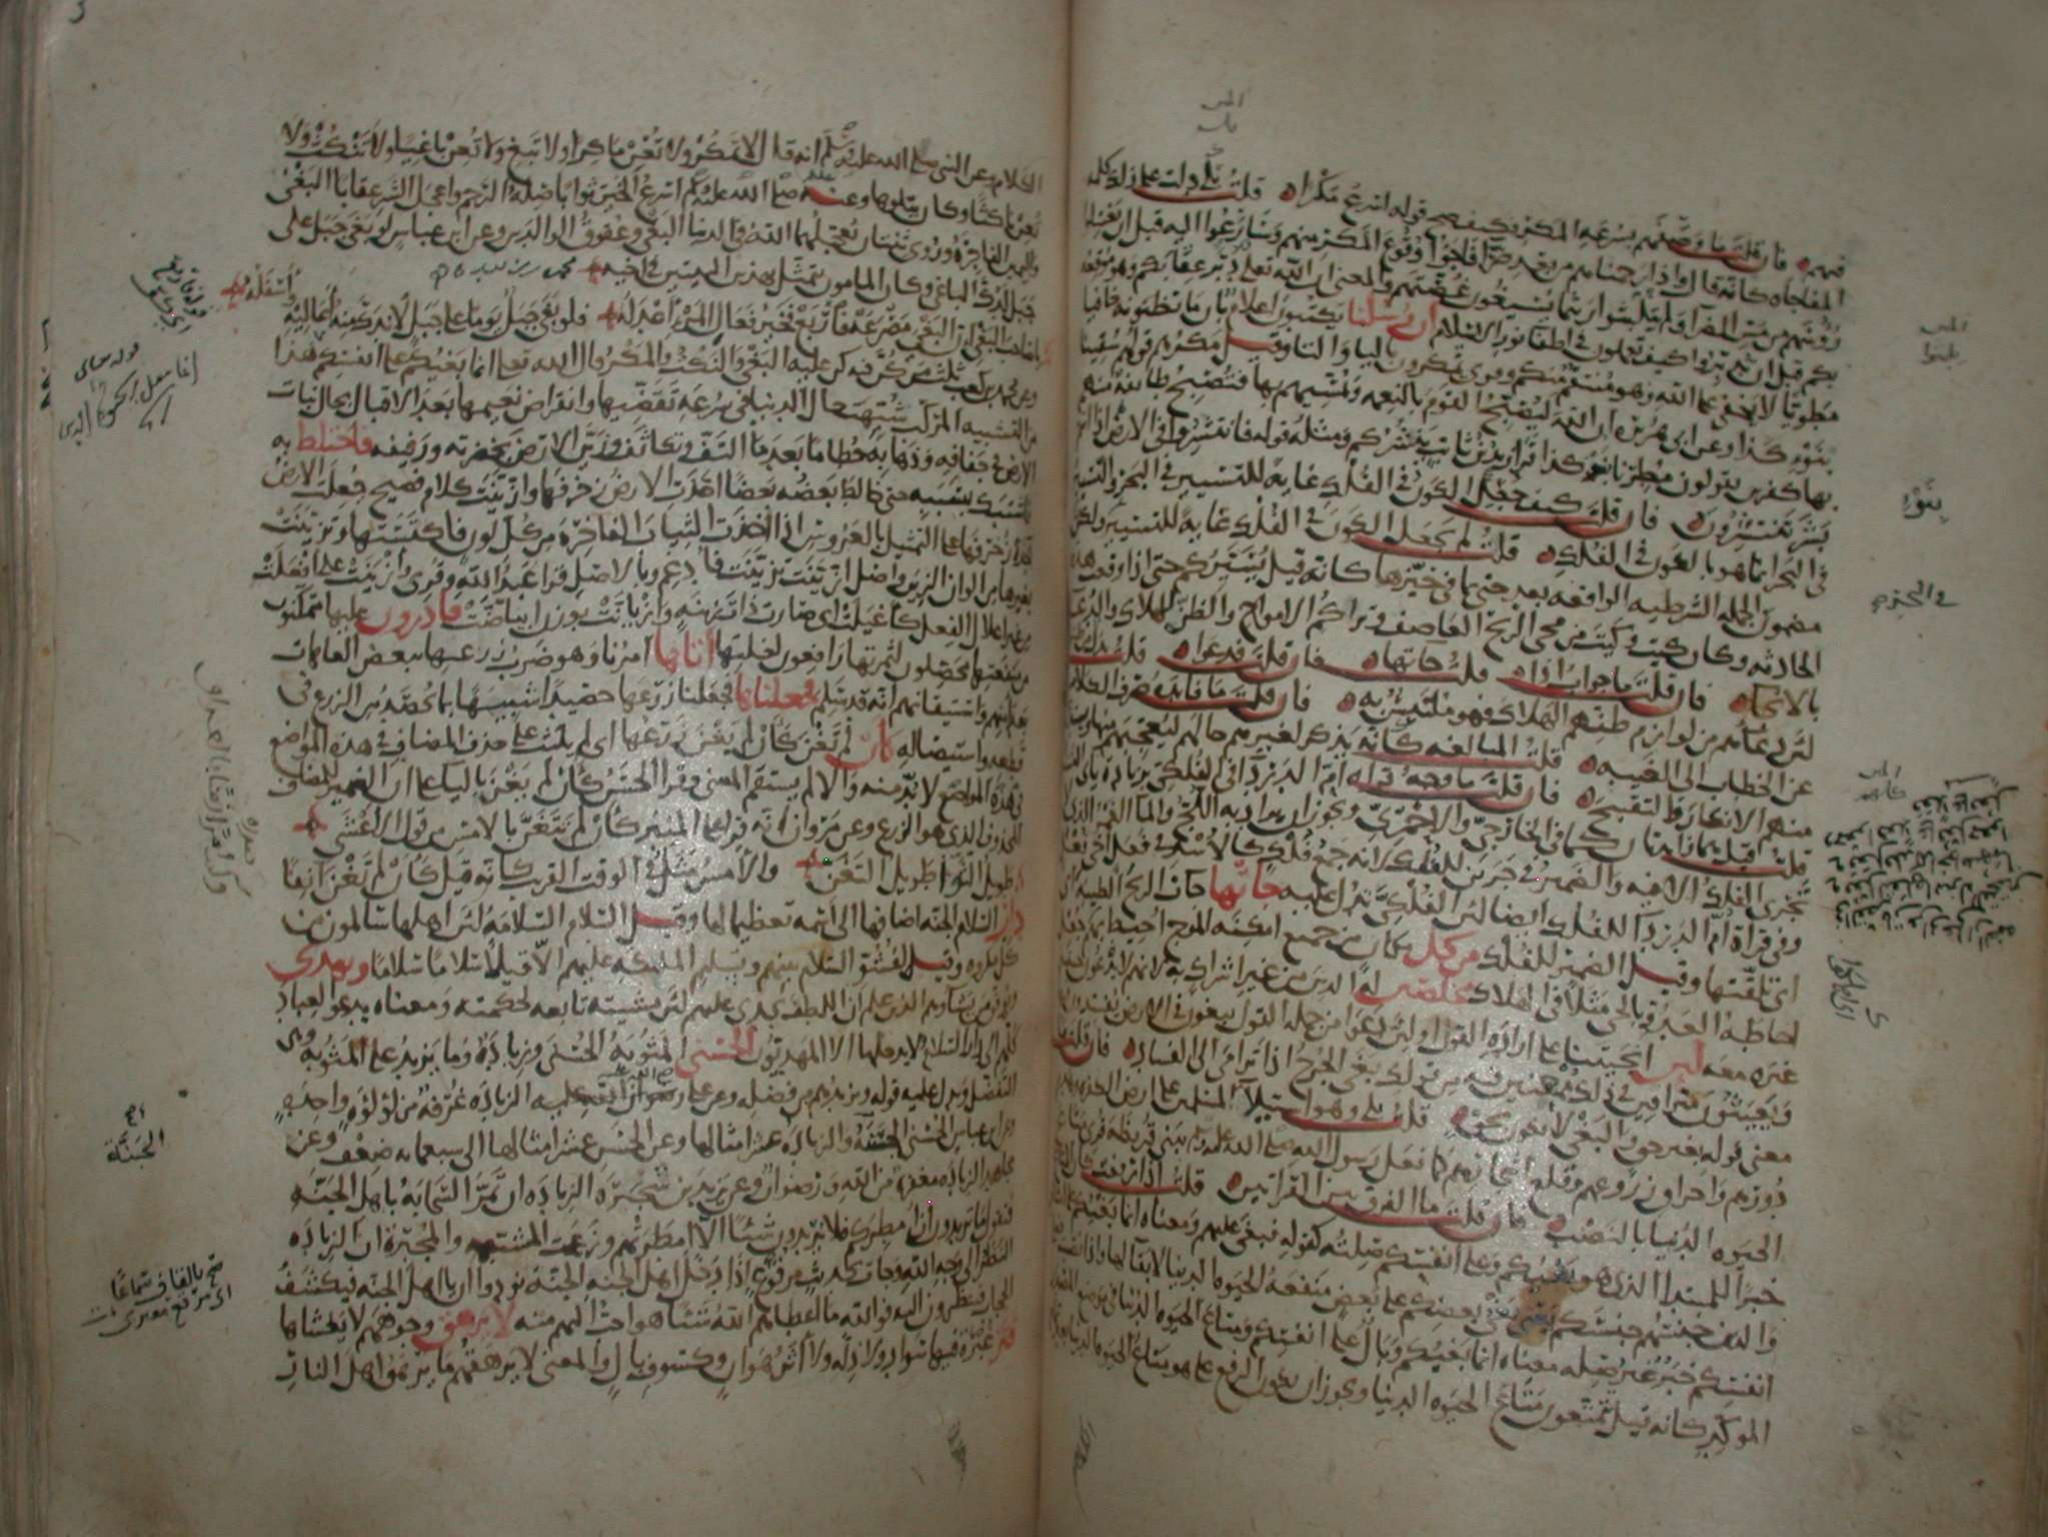 فيهم فان قلت ما وصفهم بسرعه المكر فكيف صح قوله اسرع مكرا قلت بلى دلت على ذلك كلمه
المفاجاه كانه قال واذا رحمناهم من بعد ضرا فاجؤا وقوع المكر منهم وسارعوا اليه قبل ان يغسلوا
رؤسهم من مس الضرا ولم يتلبثوا ريثما يسيغون غصتهم والمعنى ان الله تعالى دبر عقابكم وهو موقعه
بكم قبل ان تدبروا كيف تعملون في اطفا نور الاسلام ان رسلنا يكتبون اعلام بان ما تظنونه خافيا
مطويا لا يخفى على الله وهو منتقم منكم وقرى يمكرون باليا والتا وقيل مكرهم قولهم سقينا
بنوء كذا وعن ابي هريره ان الله ليصبح القوم بالنعمه ويمسيهم بها فتصبح طائفه منهم
بها كفرين يقولون مطرنا بنوء كذا قرا زيد بن ثابت ينشركم ومثله قوله فانتشروا في الارض
بشر تنتشرون فان قلت كيف جعل الكون في الفلك غايه للتسيير في البحر والتسيير
في البحر انما هو بالكون في الفلك قلت لم يجعل الكون في الفلك غايه للتسيير ولكن
مضمون الجمله الشرطيه الواقعه بعد حتى بما في حيزها كانه قيل يسيركم حتى اذا وقعت هذه
الحادثه وكان كيت وكيت من مجى الريح العاصف وتراكم الامواج والظن للهلاك والدعا
بالانجاء فان قلت ما جواب اذا قلت جاتها فان قلت فدعوا قلت بدل
لان دعاهم من لوازم ظنهم الهلاك فهو ملتبس به فان قلت ما فايده صرف الكلام
عن الخطاب الى الغيبه قلت المبالغه كانه يذكر لغيرهم حالهم ليعجبهم منها
منهم الانكار والتقبيح فان قلت ما وجه قراه ام الدرداء في الفلكي بزيادة ياي
قلت قيل هما زايدتان كما في الخارجي والاحمري ويجوز ان يراد به اللج والماء الغمر الذي
تجرى الفلك الا فيه والضمير في جرين للفلك لانه جمع فلك كالاسد في فعل اخى فعل
وفى قراة ام الدرداء للفلك ايضا لان الفلكي يدل عليه جاتها جات الريح الطيبه اى
اى تلقتها وقيل الضمير للفلك من كل مكان من جميع امكنه الموج احيط بهم جعل
احاطه العدو بالحى مثلا في الهلاك مخلصين له الدين من غير اشراك به لانهم لا يدعون
غيره معه لين انجيتنا على ارادة القول او لان دعوا من جمله القول يبغون في الارض يفسدون
ويعبثون متراقين في ذلك ممعنين فيه من قولك بغى الجرح اذا ترامى الى الفساد فان قلت
معنى قوله بغير حق والبغى لا يكون بحق قلت بلى وهو استيلاء المسلمين على ارض الكفره
دورهم واحراق زروعهم وقلع اشجارهم كما فعل رسول الله صلى الله عليه ببنى قريظه قرى متاع
الحيوه الدنيا بالنصب فان قلت ما الفرق بين القراتين قلت اذا رفعت كان
خبرا للمبتدا الذى هو بغيكم وعلى انفسكم صلته كقوله فبغى عليهم ومعناه انما بغيكم على
والذين جنسهم جنسكم يعنى بغى بعضكم على بعض منفعه الحيوه الدنيا لا بقا لها واذا نصبت
انفسكم خبر غير صله معناه انما بغيكم وبال على انفسكم ومتاع الحيوه الدنيا في موضع المصدر
الموكد كانه قيل تتمتعون متاع الحيوه الدنيا ويجوز ان يكون الرفع على هو متاع الحيوه الدنيا
بنوء
في البحر
السلام وعن النبي صلى الله عليه وسلم انه قال لا تمكر ولا تعن ماكرا ولا تبغ ولا تعن باغيا ولا تنكث ولا
تعن ناكثا وكان يتلوها وعنه صلى الله عليه وسلم اسرع الخير ثوابا صلة الرحم واعجل الشر عقابا البغى
واليمين الفاجرة وروى ثنتان يعجلهما الله في الدنيا البغى وعقوق الوالدين وعن ابن عباس لو بغى جبل على
جبل لدك الباغى وكان المامون يتمثل بهذين البيتين في اخيه
يا صاحب البغى ان البغى مصرعة فاربع فخير فعال المرء اعدله فلو بغى جبل يوما على جبل لاندك منه اعاليه
واسفله
وعن محمد بن كعب ثلث من كن فيه كن عليه البغى والنكث والمكر قال الله تعالى انما بغيكم على انفسكم هذا
من التشبيه المركب شبهت حال الدنيا في سرعه تقضيها وانقراض نعيمها بعد الاقبال بحال نبات
الارض في جفافه وذهابه حطاما بعد ما التف وتكاثف وزين الارض بخضرته ورفيفه فاختلط به
فاشتبك بسببه حتى خالط بعضه بعضا اخذت الارض زخرفها وازينت كلام فصيح جعلت الارض
اخذة زخرفها على التمثيل بالعروس اذا اخذت الثياب الفاخرة من كل لون فاكتستها وتزينت
بغيرها من الوان الزين واصل ازينت تزينت فادغم وبالاصل قرا عبد الله وقرى وازينت على افعلت
من غير اعلال الفعل كاغيلت اى صارت ذات زينه وازيانت بوزن ابياضت قادرون عليها متمكنون
من منفعتها محصلون لثمرتها رافعون لغلتها اتاها امرنا وهو ضرب زرعها ببعض العاهات
بعد امنهم واستيقانهم انه قد سلم فجعلناها فجعلنا زرعها حصيدا شبيها بما يحصد من الزرع في
قطعه واستيصاله كان لم تغن كان لم يغن زرعها اى لم يلبث على حذف المضاف في هذه المواضع
في هذه المواضع لا بد منه والا لم يستقم المعنى وقرا الحسن كان لم يغن باليا على ان الضمير للمضاف
المحذوف الذى هو الزرع وعن مروان انه قرا على المنبر كان لم تتغن بالامس من قول الاعشى
طويل الثواء طويل التغن والامس مثل في الوقت القريب كانه قيل كان لم تغن انفا
دار السلام الجنه اضافها الى اسمه تعظيما لها وقيل السلام السلامه لان اهلها سالمون من
كل مكروه وقيل لفشو السلام بينهم وتسليم الملائكه عليهم الا قيلا سلاما سلاما ويهدى
ويوفق من يشا وهم الذين علم ان اللطف يجدى عليهم لان مشيته تابعه لحكمته ومعناه يدعو العباد
كلهم الى دار السلام لا يدخلها الا المهديون الحسنى المثوبه الحسنى وزيادة وما يزيد على المثوبه وهى
التفضل ويدل عليه قوله ويزيدهم من فضله وعن على رضوان الله عليه الزياده غرفة من لؤلؤه واحده
وعن ابن عباس الحسنى الحسنة والزياده عشر امثالها وعن الحسن عشر امثالها الى سبعمايه ضعف وعن
مجاهد الزياده مغفره من الله ورضوان وعن يزيد بن شجرة الزياده ان تمر السحابة باهل الجنة
فتقول ما تريدون ان امطركم فلا يريدون شيئا الا امطرتهم وزعمت المشبهه والمجبرة ان الزياده
النظر الى وجه الله وجات بحديث مرقوع اذا دخل اهل الجنه الجنة نودوا ان يا اهل الجنه فيكشف
الحجاب فينظرون اليه فوالله ما اعطاهم الله شيئا هو احب اليهم منه لا يرهق وجوههم لا يغشاها
قتر غبرة فيها سواد ولا ذله ولا اثر هوان وكسوف بال والمعنى لا يرهقهم ما يرهق اهل النار
الجنة